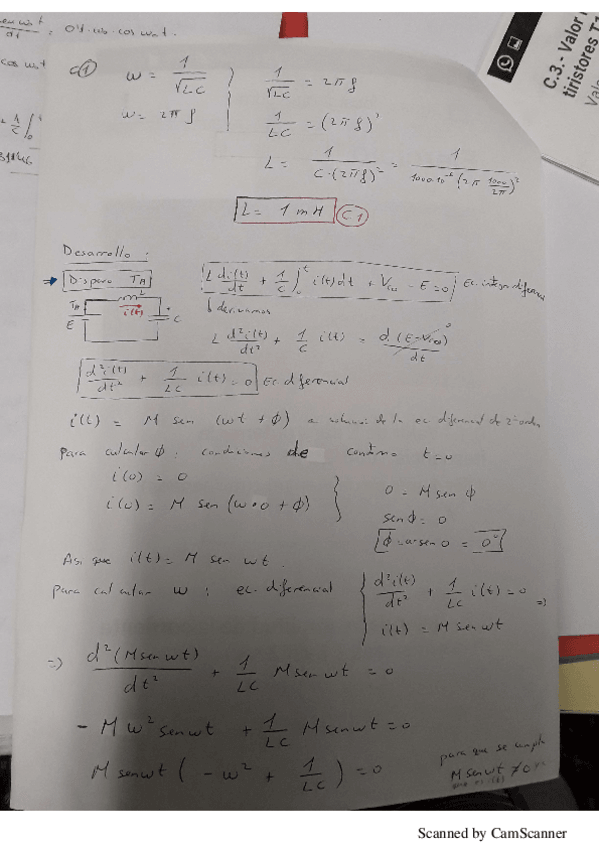 = 0'4 · ω₀ · cos ω₀t.
C.3.- Valor
tiristores T1
C1) ω = 1/√LC
ω = 2π f
1/√LC = 2π f
1/LC = (2π f)²
L = 1/(C·(2π f)²) = 1/(1000·10⁻⁶ (2π 1000/2π)²)
L = 1 mH (C1)
Desarrollo :
→ Disparo TA
L di(t)/dt + 1/C ∫₀ᵗ i(t)dt + Vco - E = 0 Ec. integro diferencial
↓ derivamos
TA L i(t) E C
L d²i(t)/dt² + 1/C i(t) = d(E-Vco)/dt ⁰
d²i(t)/dt² + 1/LC i(t) = 0 Ec. diferencial
i(t) = M sen (ωt + ϕ) solución de la ec. diferencial de 2º orden
Para calcular ϕ : condiciones de contorno t=0
i(0) = 0
i(0) = M sen (ω·0 + ϕ)
0 = M sen ϕ
sen ϕ = 0
ϕ = arsen 0 = 0°
Así que i(t) = M sen ωt.
Para calcular ω : ec. diferencial
d²i(t)/dt² + 1/LC i(t) = 0 =>
i(t) = M sen ωt
=> d²(M sen ωt)/dt² + 1/LC M sen ωt = 0
- M ω² sen ωt + 1/LC M sen ωt = 0
M sen ωt ( - ω² + 1/LC ) = 0
para que se cumpla
M sen ωt ≠ 0
Scanned by CamScanner